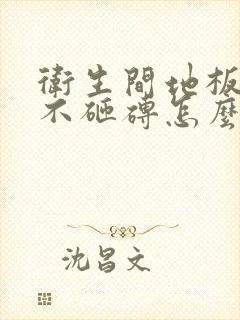 衛生間地板
不砸磚怎麼
沈昌文